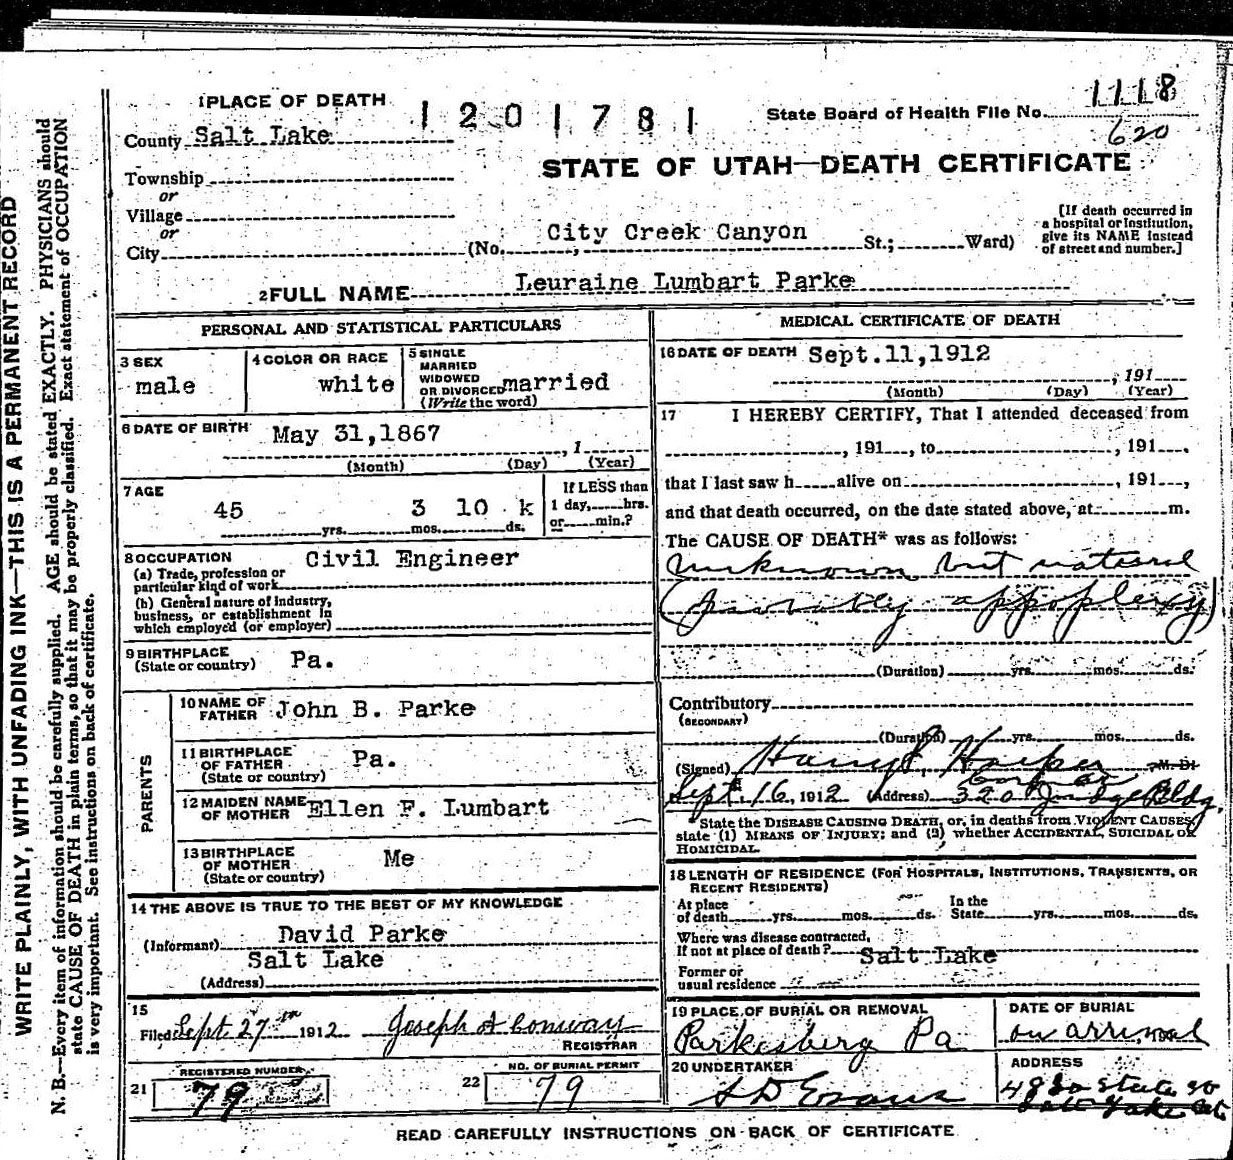 1 PLACE OF DEATH
1201781
State Board of Health File No. 1118
620
County Salt Lake
STATE OF UTAH—DEATH CERTIFICATE
Township
or
Village
or
City (No. City Creek Canyon St.; Ward)
[If death occurred in
a hospital or institution,
give its NAME instead
of street and number.]
2 FULL NAME Leuraine Lumbart Parke
PERSONAL AND STATISTICAL PARTICULARS
3 SEX
male
4 COLOR OR RACE
white
5 SINGLE
MARRIED
WIDOWED
OR DIVORCED married
(Write the word)
6 DATE OF BIRTH May 31,1867
, 1
(Month) (Day) (Year)
7 AGE
45 yrs. 3 mos. 10 k ds.
If LESS than
1 day, hrs.
or min.?
8 OCCUPATION Civil Engineer
(a) Trade, profession or
particular kind of work
(b) General nature of industry,
business, or establishment in
which employed (or employer)
9 BIRTHPLACE
(State or country) Pa.
PARENTS
10 NAME OF
FATHER John B. Parke
11 BIRTHPLACE
OF FATHER
(State or country) Pa.
12 MAIDEN NAME
OF MOTHER Ellen F. Lumbart
13 BIRTHPLACE
OF MOTHER
(State or country) Me
14 THE ABOVE IS TRUE TO THE BEST OF MY KNOWLEDGE
(Informant) David Parke
Salt Lake
(Address)
15
Filed Sept 27th 1912 Joseph A Conway
REGISTRAR
21 REGISTERED NUMBER
79
22 NO. OF BURIAL PERMIT
79
MEDICAL CERTIFICATE OF DEATH
16 DATE OF DEATH Sept.11,1912
, 191
(Month) (Day) (Year)
17 I HEREBY CERTIFY, That I attended deceased from
, 191 , to , 191 .
that I last saw h alive on , 191 ,
and that death occurred, on the date stated above, at m.
The CAUSE OF DEATH* was as follows:
unknown but natural
(probably appoplexy)
(Duration) yrs. mos. ds.
Contributory
(SECONDARY)
(Duration) yrs. mos. ds.
(Signed) Harry Harker M.D.
Coroner
Sept. 16, 1912 (Address) 320 Judge Bldg.
State the DISEASE CAUSING DEATH, or, in deaths from VIOLENT CAUSES,
state (1) MEANS OF INJURY; and (2) whether ACCIDENTAL, SUICIDAL OR
HOMICIDAL.
18 LENGTH OF RESIDENCE (FOR HOSPITALS, INSTITUTIONS, TRANSIENTS, OR
RECENT RESIDENTS)
At place
of death yrs. mos. ds.
In the
State yrs. mos. ds.
Where was disease contracted,
if not at place of death? Salt Lake
Former or
usual residence
19 PLACE OF BURIAL OR REMOVAL
Parkesberg Pa
DATE OF BURIAL
on arrival, 191
20 UNDERTAKER
S D Evans
ADDRESS
48 So State so
Salt Lake
READ CAREFULLY INSTRUCTIONS ON BACK OF CERTIFICATE
WRITE PLAINLY, WITH UNFADING INK—THIS IS A PERMANENT RECORD
N. B.—Every item of information should be carefully supplied. AGE should be stated EXACTLY. PHYSICIANS should
state CAUSE OF DEATH in plain terms, so that it may be properly classified. Exact statement of OCCUPATION
is very important. See instructions on back of certificate.